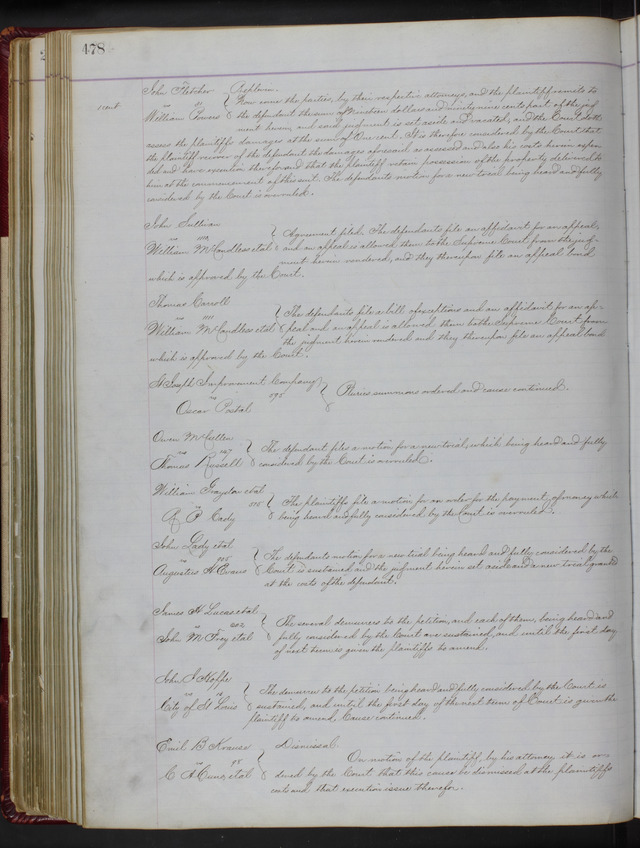 478
John Fletcher } Replevin.
vs 11 } Now come the parties, by their respective attorneys, and the plaintiff remits to
1 cent William Powers } the defendant the sum of Nineteen dollars and ninety nine cents part of the judg
ment herein, and said judgment is set aside and vacated, and the Court doth
assess the plaintiffs damages at the sum of One cent. It is therefore considered by the Court that
the plaintiff recover of the defendant the damages aforesaid as assessed and also his costs herein expen
ded and have execution therefor and that the plaintiff retain possession of the property delivered to
him at the commencement of this suit. The defendants motion for a new trial being heard and fully
considered by the Court is overruled.
John Sullivan
vs 1110 } Agreement filed. The defendants file an affidavit for an appeal,
William McCandless et al } and an appeal is allowed them to the Supreme Court from the judg
ment herein rendered, and they thereupon file an appeal bond
which is approved by the Court.
Thomas Carroll
vs 1111 } The defendants file a bill of exceptions and an affidavit for an ap
William McCandless et al } peal and an appeal is allowed them to the Supreme Court from
the judgment herein rendered and they thereupon file an appeal bond
which is approved by the Court.
St Joseph Improvement Company }
vs 595 } Pluries summons ordered and cause continued.
Oscar Postal
Owen McCullen
vs 767 } The defendant files a motion for a new trial, which being heard and fully
Thomas Russell } considered by the Court is overruled.
William Grayston et al
vs 515 } The plaintiffs file a motion for an order for the payment of money which
R P Cady } being heard and fully considered by the Court is overruled.
John Lady et al
vs } The defendants motion for a new trial being heard and fully considered by the
Augustus H Evans } Court is sustained and the judgment herein set aside and a new trial granted
at the costs of the defendant.
James H Lucas et al
vs 202 } The several demurrers to the petition, and each of them, being heard and
John M Troy et al } fully considered by the Court are sustained, and until the first day
of next term is given the plaintiffs to amend.
John J Hoppe
vs } The demurrer to the petition being heard and fully considered by the Court is
City of St Louis } sustained, and until the first day of the next term of Court is given the
plaintiff to amend. Cause continued.
Emil B Krause } Dismissal.
vs 98 } On motion of the plaintiff, by his attorney, it is or
C A Cuno et al } dered by the Court that this cause be dismissed at the plaintiffs
costs and that execution issue therefor.